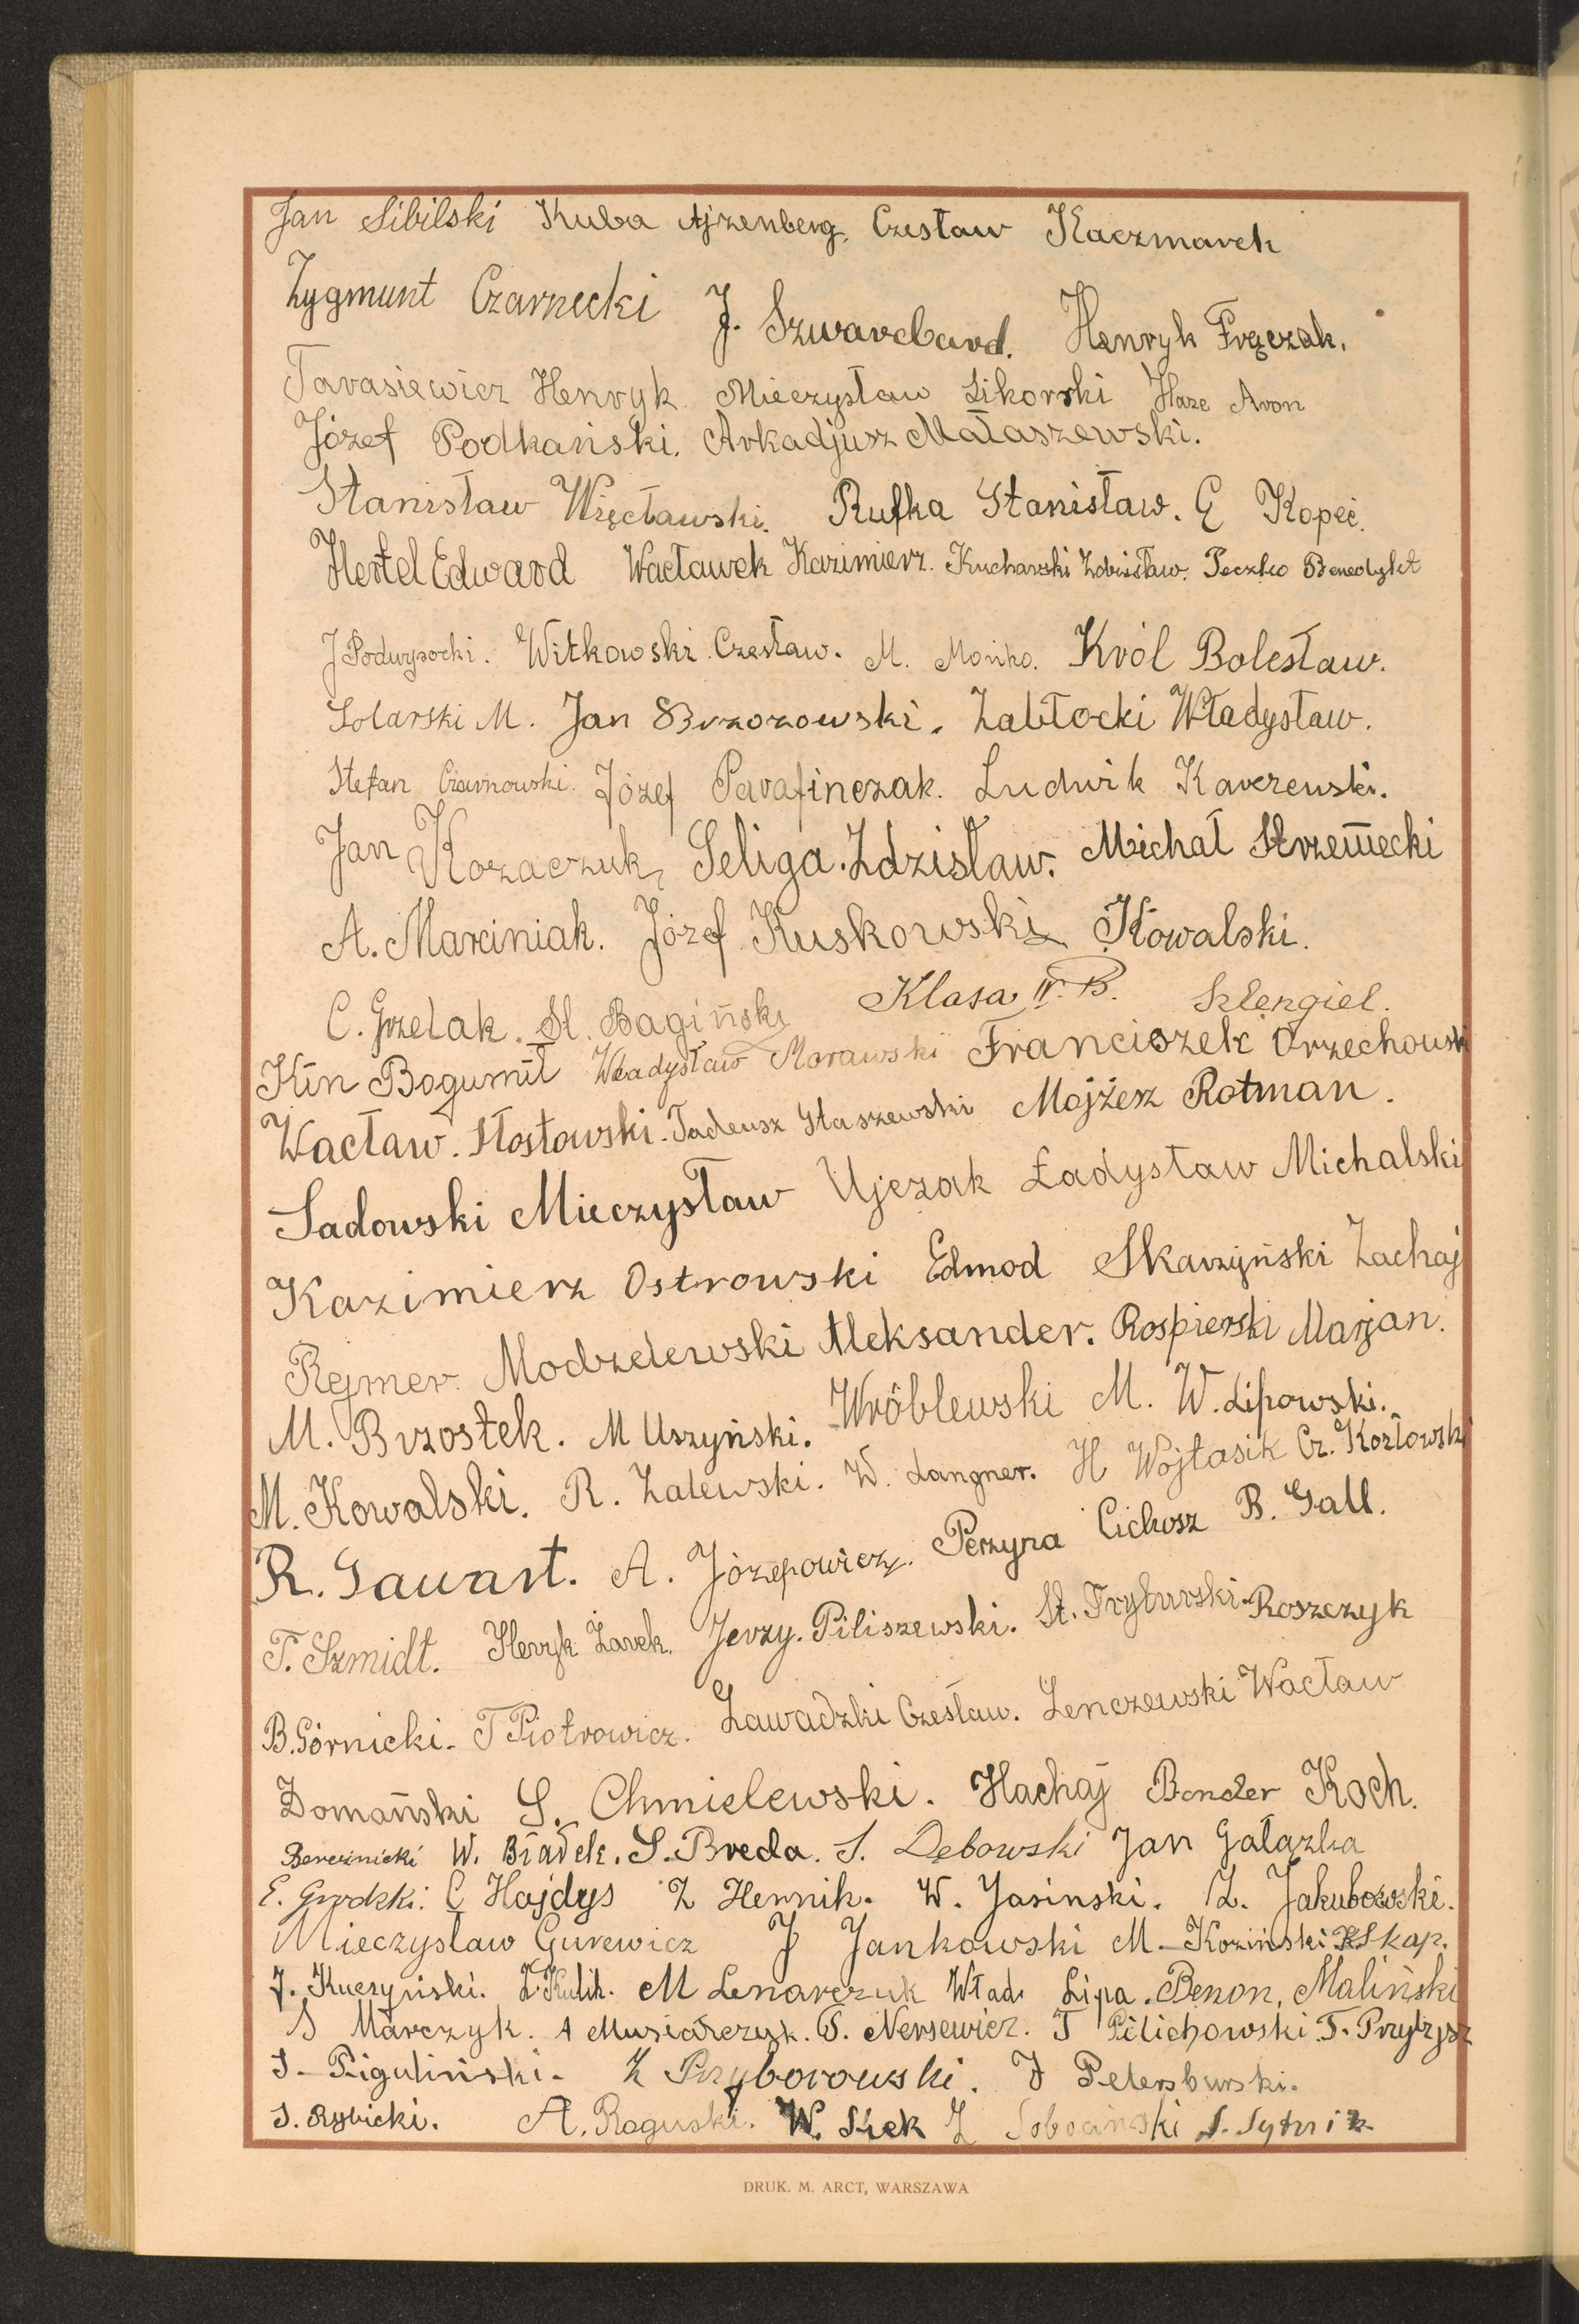 Jan Sibilski Kuba Ajzenberg. Czesław Kaczmarek
Zygmunt Czarnecki J. Szwarcbard. Henryk Frączak.
Tarasiewicz Henryk. Mieczysław Sikorski Haze Aron
Józef Podkański. Arkadjusz Małaszewski.
Stanisław Więcławski. Rufka Stanisław. E Kopeć.
Hertel Edward Wacławek Kazimierz. Kucharski Zdzisław. Peczko Benedykt
J Podwysocki. Witkowski Czesław. M. Mońko. Król Bolesław.
Solarski M. Jan Brzozowski. Zabłocki Władysław.
Stefan Czarnowski. Józef Parafinczak. Ludwik Karczewski.
Jan Kozaczuk, Seliga. Zdzisław. Michał Strzemecki
A. Marciniak. Józef Kuskowski Kowalski.
C. Grzelak. St. Bagiński Klasa IV. B. Szlengiel.
Kin Bogumił Władysław Morawski Franciszek Orzechowski
Wacław. Stosławski. Tadeusz Staszewski Mojżesz Rotman.
Sadowski Mieczysław Ujczak Ładysław Michalski
Kazimierz Ostrowski Edmod Skarzyński Zachaj
Rejmer Modzelewski Aleksander. Rospierski Marjan.
M. Brzostek. M Uszyński. Wróblewski M. W. Lipowski.
M. Kowalski. R. Zalewski. W. Langner. H Wojtasik Cz. Kozłowski
R. Gawart. A. Józepowicz. Perzyna Cichosz B. Gall.
T. Szmidt. Henryk Żarek. Jerzy. Piliszewski. St. Fryburski. Roszczyk
B. Górnicki. T Piotrowicz. Zawadzki Czesław. Lenczewski Wacław
Domański S. Chmielewski. Hachaj Bender Koch.
Bereźnicki W. Bładek. S. Breda. S. Dębowski Jan Gałązka
E. Grodzki. C Hajdys Z Hernik. W. Jasinski. Z. Jakubowski.
Mieczysław Gurewicz J Jankowski M. Koziński K Skap.
J. Kuczyński. Z. Kulik. M Lenarczuk Wład. Lipa. Benon, Maliński
S Marczyk. A Musiarczyk. S. Nersewicz. T Pilichowski
S. Piguliński. Z Przyborowski. J Petersburski.
S. Rybicki. A. Roguski. W. Siek Z Sobociński S. Sytnik
DRUK. M. ARCT, WARSZAWA